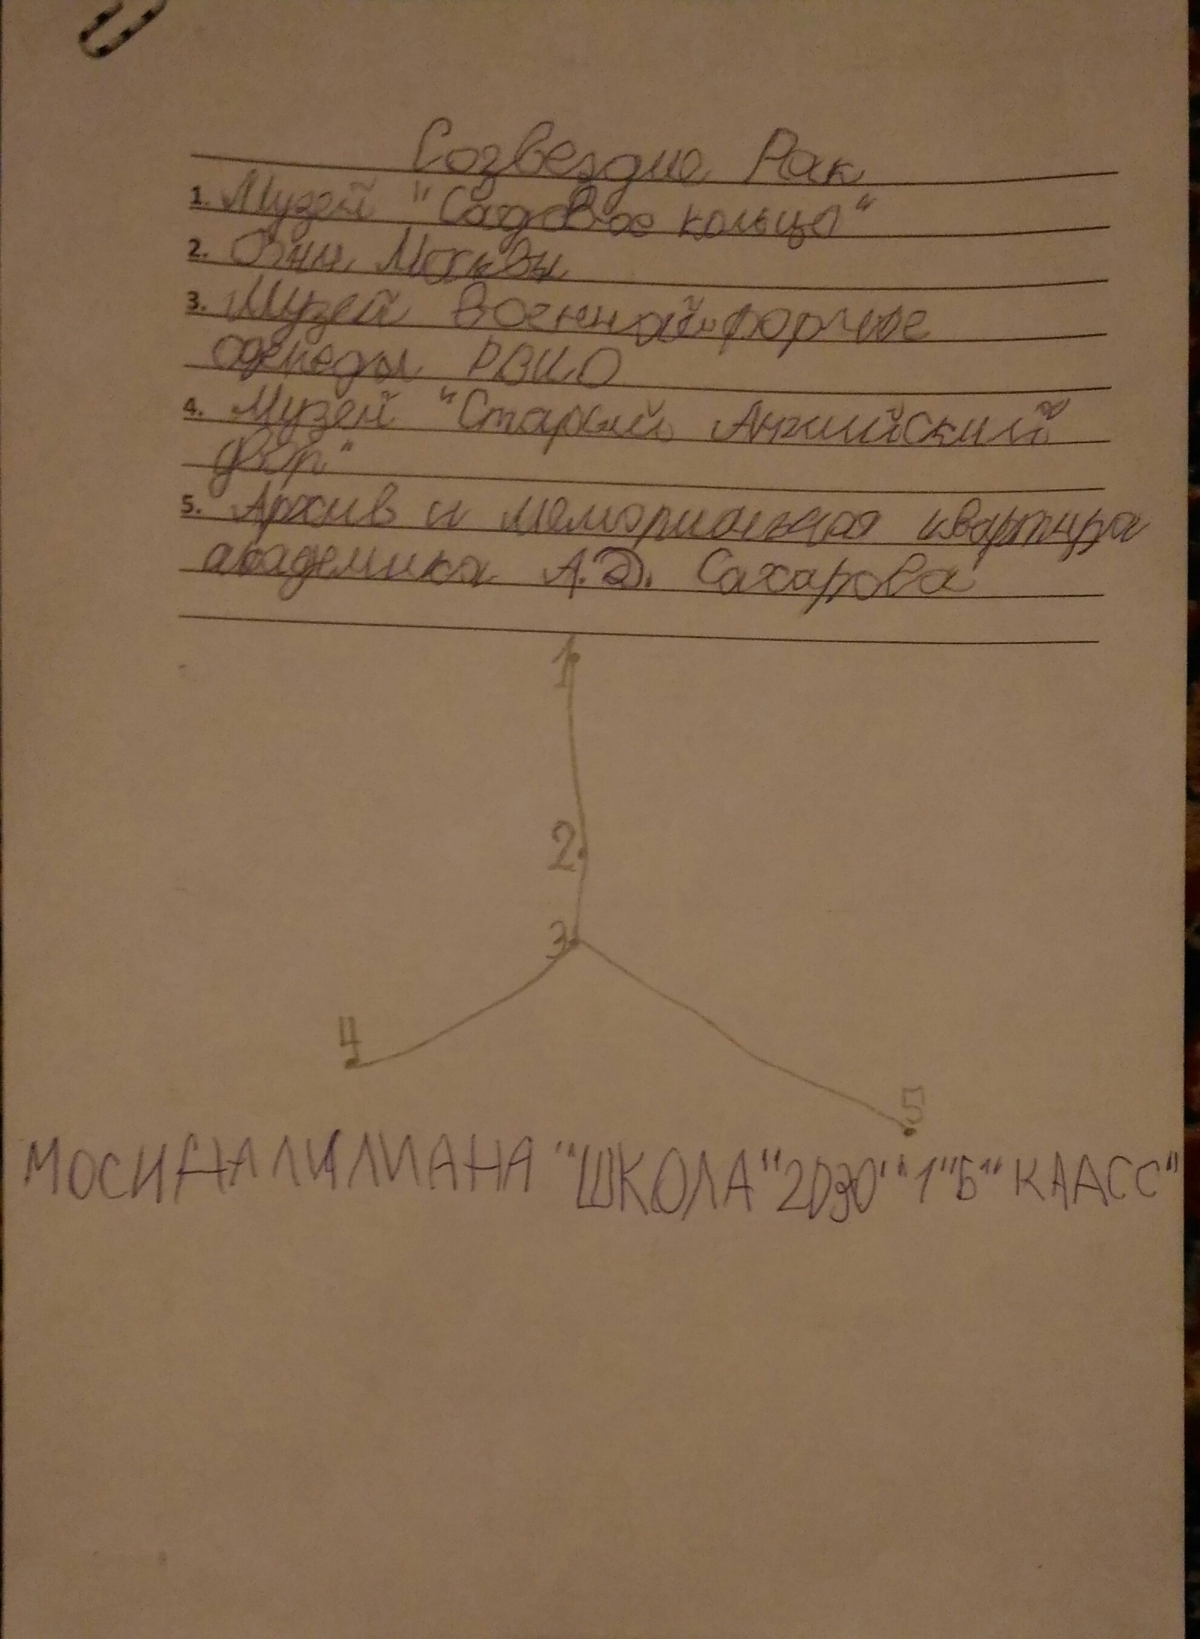 Созвездие Рак
1. Музей "Садовое кольцо"
2. Огни Москвы
3. Музей Военной форме
одежды РВИО
4. Музей "Старый Англйиский
двор"
5. Архив и мемориальная квартира
академика А.Д. Сахарова
1
2
3
4
5
МОСИНА ЛИЛИАНА "ШКОЛА" "2030" "1 "Б" КЛАСС"